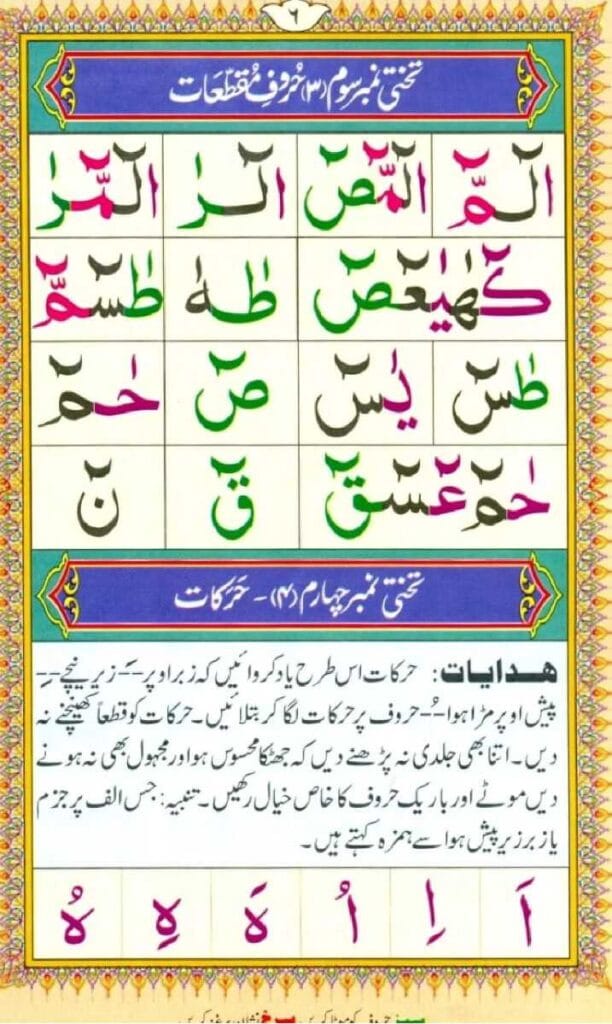 ٦
تختی نمبر سوم (۳) حُروفِ مُقَطَّعَات
الٓمّٓ الٓمّٓصٓ الٓرٰ الٓمّٓرٰ
كٓهٰيٰعٓصٓ طٰهٰ طٰسٓمّٓ
طٰسٓ يٰسٓ صٓ حٰمٓ
حٰمٓ عٓسٓقٓ قٓ نٓ
تختی نمبر چہارم (۴) - حَرَکات
ھدایات: حرکات اس طرح یاد کروائیں کہ زبر اوپر ـَـ زیر نیچے ـِـ
پیش اوپر مڑا ہوا ـُـ حروف پر حرکات لگا کر بتلائیں۔ حرکات کو قطعاً کھینچنے نہ
دیں۔ اتنا بھی جلدی نہ پڑھنے دیں کہ جھٹکا محسوس ہو اور مجہول بھی نہ ہونے
دیں موٹے اور باریک حروف کا خاص خیال رکھیں۔ تنبیہ: جس الف پر جزم
یا زبر زیر پیش ہو اسے ہمزہ کہتے ہیں۔
اَ اِ اُ هَ هِ هُ